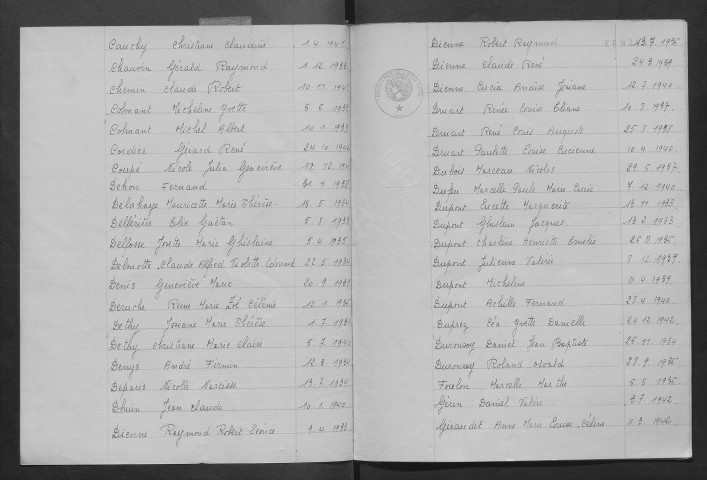 Cauchy Christiane Claudine 1.4.1941
Chauvin Gérald Raymond 1.12.1933
Chemin Claude Robert 10.11.194
Colmant Micheline Yvette 5.6.193
Colmant Michel Albert 14.1.1939
Cordier Gérard René 24.10.194
Coupé Nicole Julia Geneviève 19.12.194
Dehon Fernand 31.1.193
Delahaye Mauricette Marie Thérèse 13.5.1934
Dellérière Elie Gaëtan 5.8.193
Dellosse Josette Marie Ghislaine 5.4.1935
Delmotte Claude Alfred Violette Edouard 22.5.1934
Denis Geneviève Marie 20.9.1939
Deruche Reine Marie Zoé 12.1.1935
Dethy Josiane Marie Thérèse 1.7.193
Dethy Christiane Marie Claire 5.7.194
Denys André Firmin 12.3.1934
Deparis Nicolle Narcisse 19.2.1934
Dhuin Jean Claude 10.1.1940
Dienne Raymond Robert Léonce 9.4.193
Dienne Robert Raymond 13.7.1935
Dienne Claude René 24.3.1939
Dienne Lucia Anaïse Josiane 12.8.1940
Druart Renée Louise Eliane 10.8.1937
Druart René Louis Auguste 25.8.1938
Druart Paulette Louise Lucienne 10.4.1940
Dubois Marceau Nicolas 29.6.1937
Marcelle Paule Marie Lucie 7.12.1940
Dupont Lucette Marguerite 13.11.1933
Dupont Ghislain Jacques 13.2.1933
Dupont Charline Henriette Emélie 25.8.1935
Dupont Julienne Valérie 8.12.1939
Dupont Micheline 11.4.1939
Dupont Achille Fernand 28.4.1940
Duprez Léa Yvette Danielle 24.12.1942
Duronsoy Daniel Jean Baptiste 26.11.1934
Duronsoy Roland 28.9.1935
Foulon Marcelle Marthe 5.5.1935
Gérin Daniel Valère 3.7.1942
Giraudet Anne Marie Louise Céline 11.3.1942